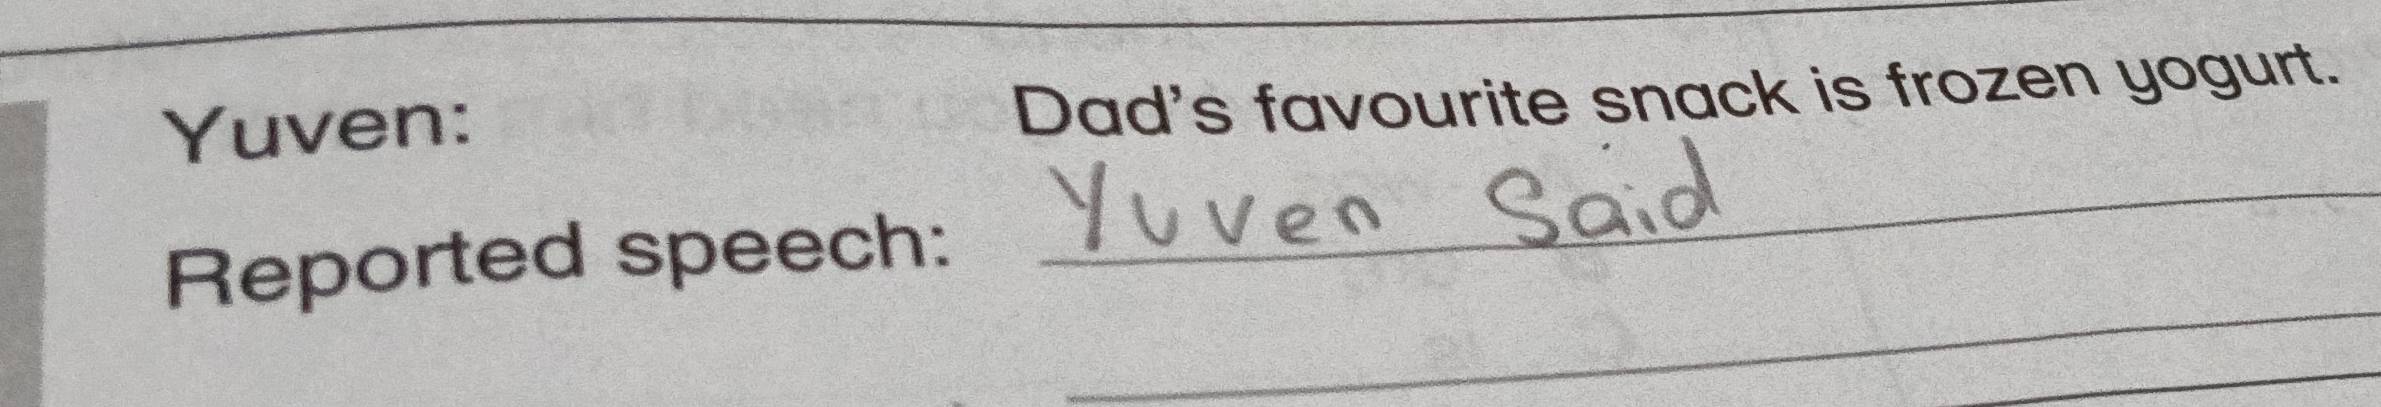 Yuven: Dad's favourite snack is frozen yogurt.
Reported speech: Yuven Said